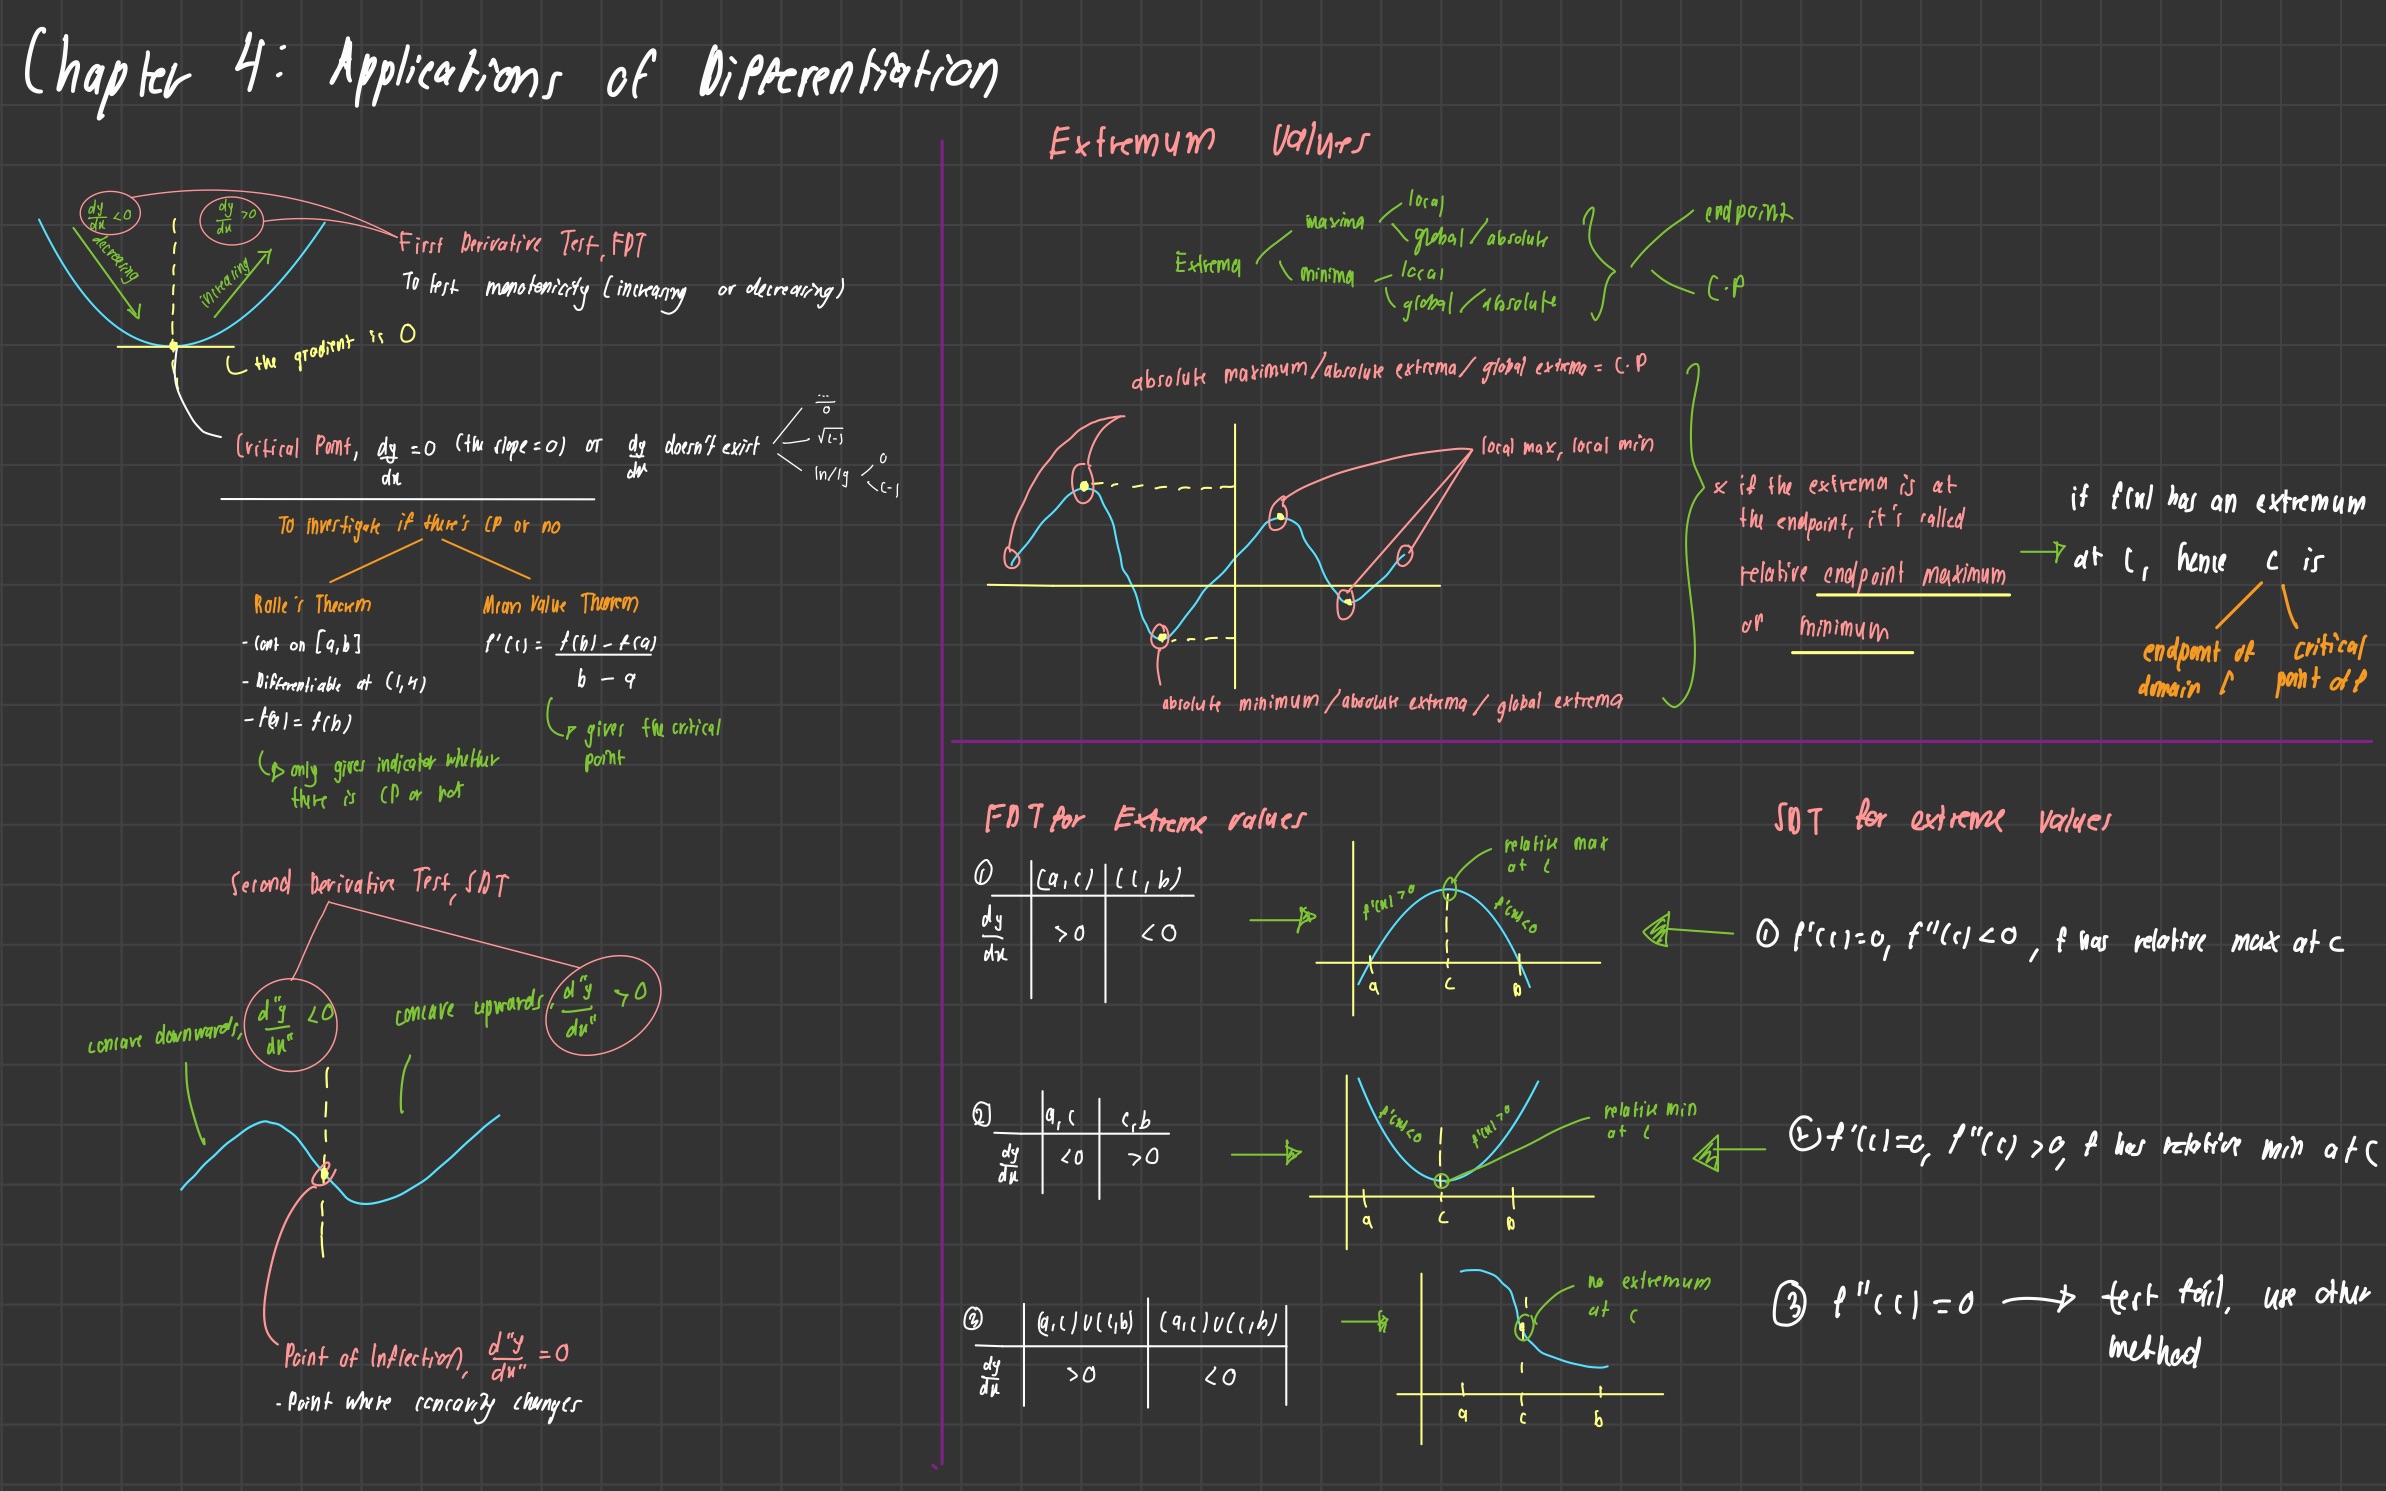 Chapter 4: Applications of Differentiation
dy/dx <0
dy/dx >0
decreasing
increasing
First Derivative Test, FDT
To test monotonicity (increasing or decreasing)
the gradient is 0
Critical Point, dy/dx =0 (the slope=0) or dy/dx doesn't exist
.../0
√(-)
ln/lg
0
(-)
To investigate if there's CP or no
Rolle's Theorem
- Cont on [a,b]
- Differentiable at (1,4)
- f(a) = f(b)
only gives indicator whether
there is CP or not
Mean Value Theorem
f'(c) = f(b) - f(a) / b - a
gives the critical
point
Second Derivative Test, SDT
concave downwards, d"y/dx" <0
concave upwards, d"y/dx" >0
Point of Inflection, d"y/dx" =0
- Point where concavity changes
Extremum Values
Extrema
maxima
local
global/absolute
minima
local
global/absolute
endpoint
C.P
absolute maximum/absolute extrema/global extrema = C.P
local max, local min
absolute minimum/absolute extrema/global extrema
* if the extrema is at
the endpoint, it's called
relative endpoint maximum
or minimum
if f(x) has an extremum
at C, hence C is
endpoint of
domain f
critical
point of f
FDT for Extreme values
① (a,c) (c,b)
dy/dx >0 <0
f'(x)>0
f'(x)<0
relative max
at c
a c b
② a,c c,b
dy/dx <0 >0
f'(x)<0
f'(x)>0
relative min
at c
a c b
③ (a,c)∪(c,b) (a,c)∪(c,b)
dy/dx >0 <0
no extremum
at c
a c b
SDT for extreme values
① f'(c)=0, f''(c)<0, f has relative max at c
② f'(c)=0, f''(c)>0, f has relative min at c
③ f''(c)=0 → test fail, use other
method